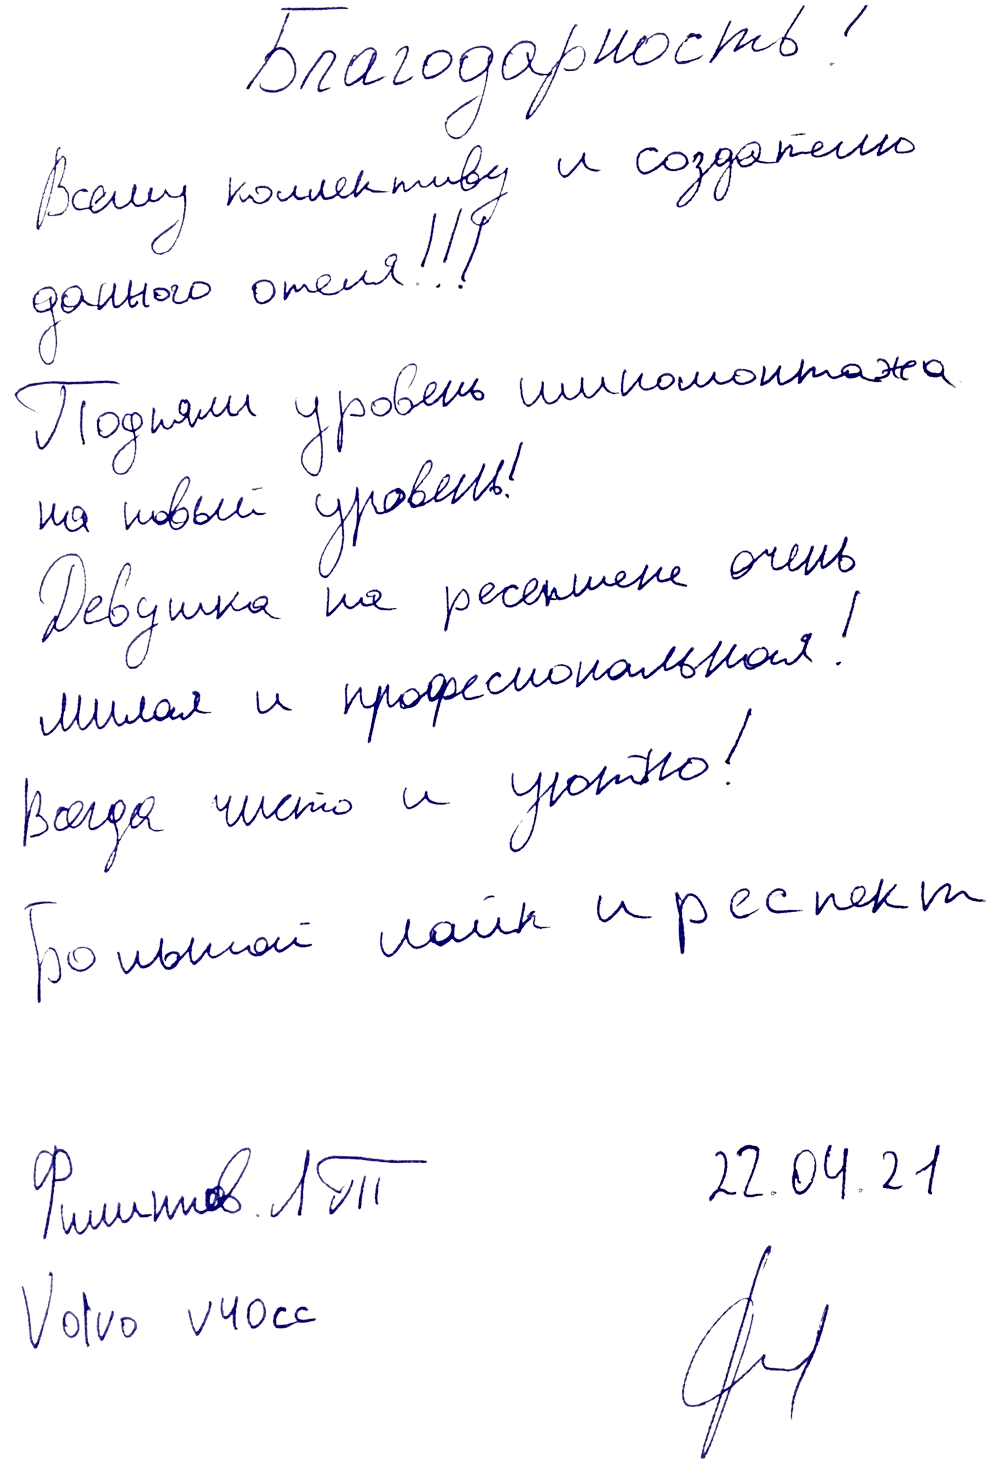 Благодарность!
Всему коллективу и создателю
данного отеля!!!
Подняли уровень шиномонтажа
на новый уровень!
Девушка на ресепшене очень
милая и професиональная!
Всегда чисто и уютно!
Большой лайк и респект
Филиппов. Л П
22.04.21
Volvo V40cc